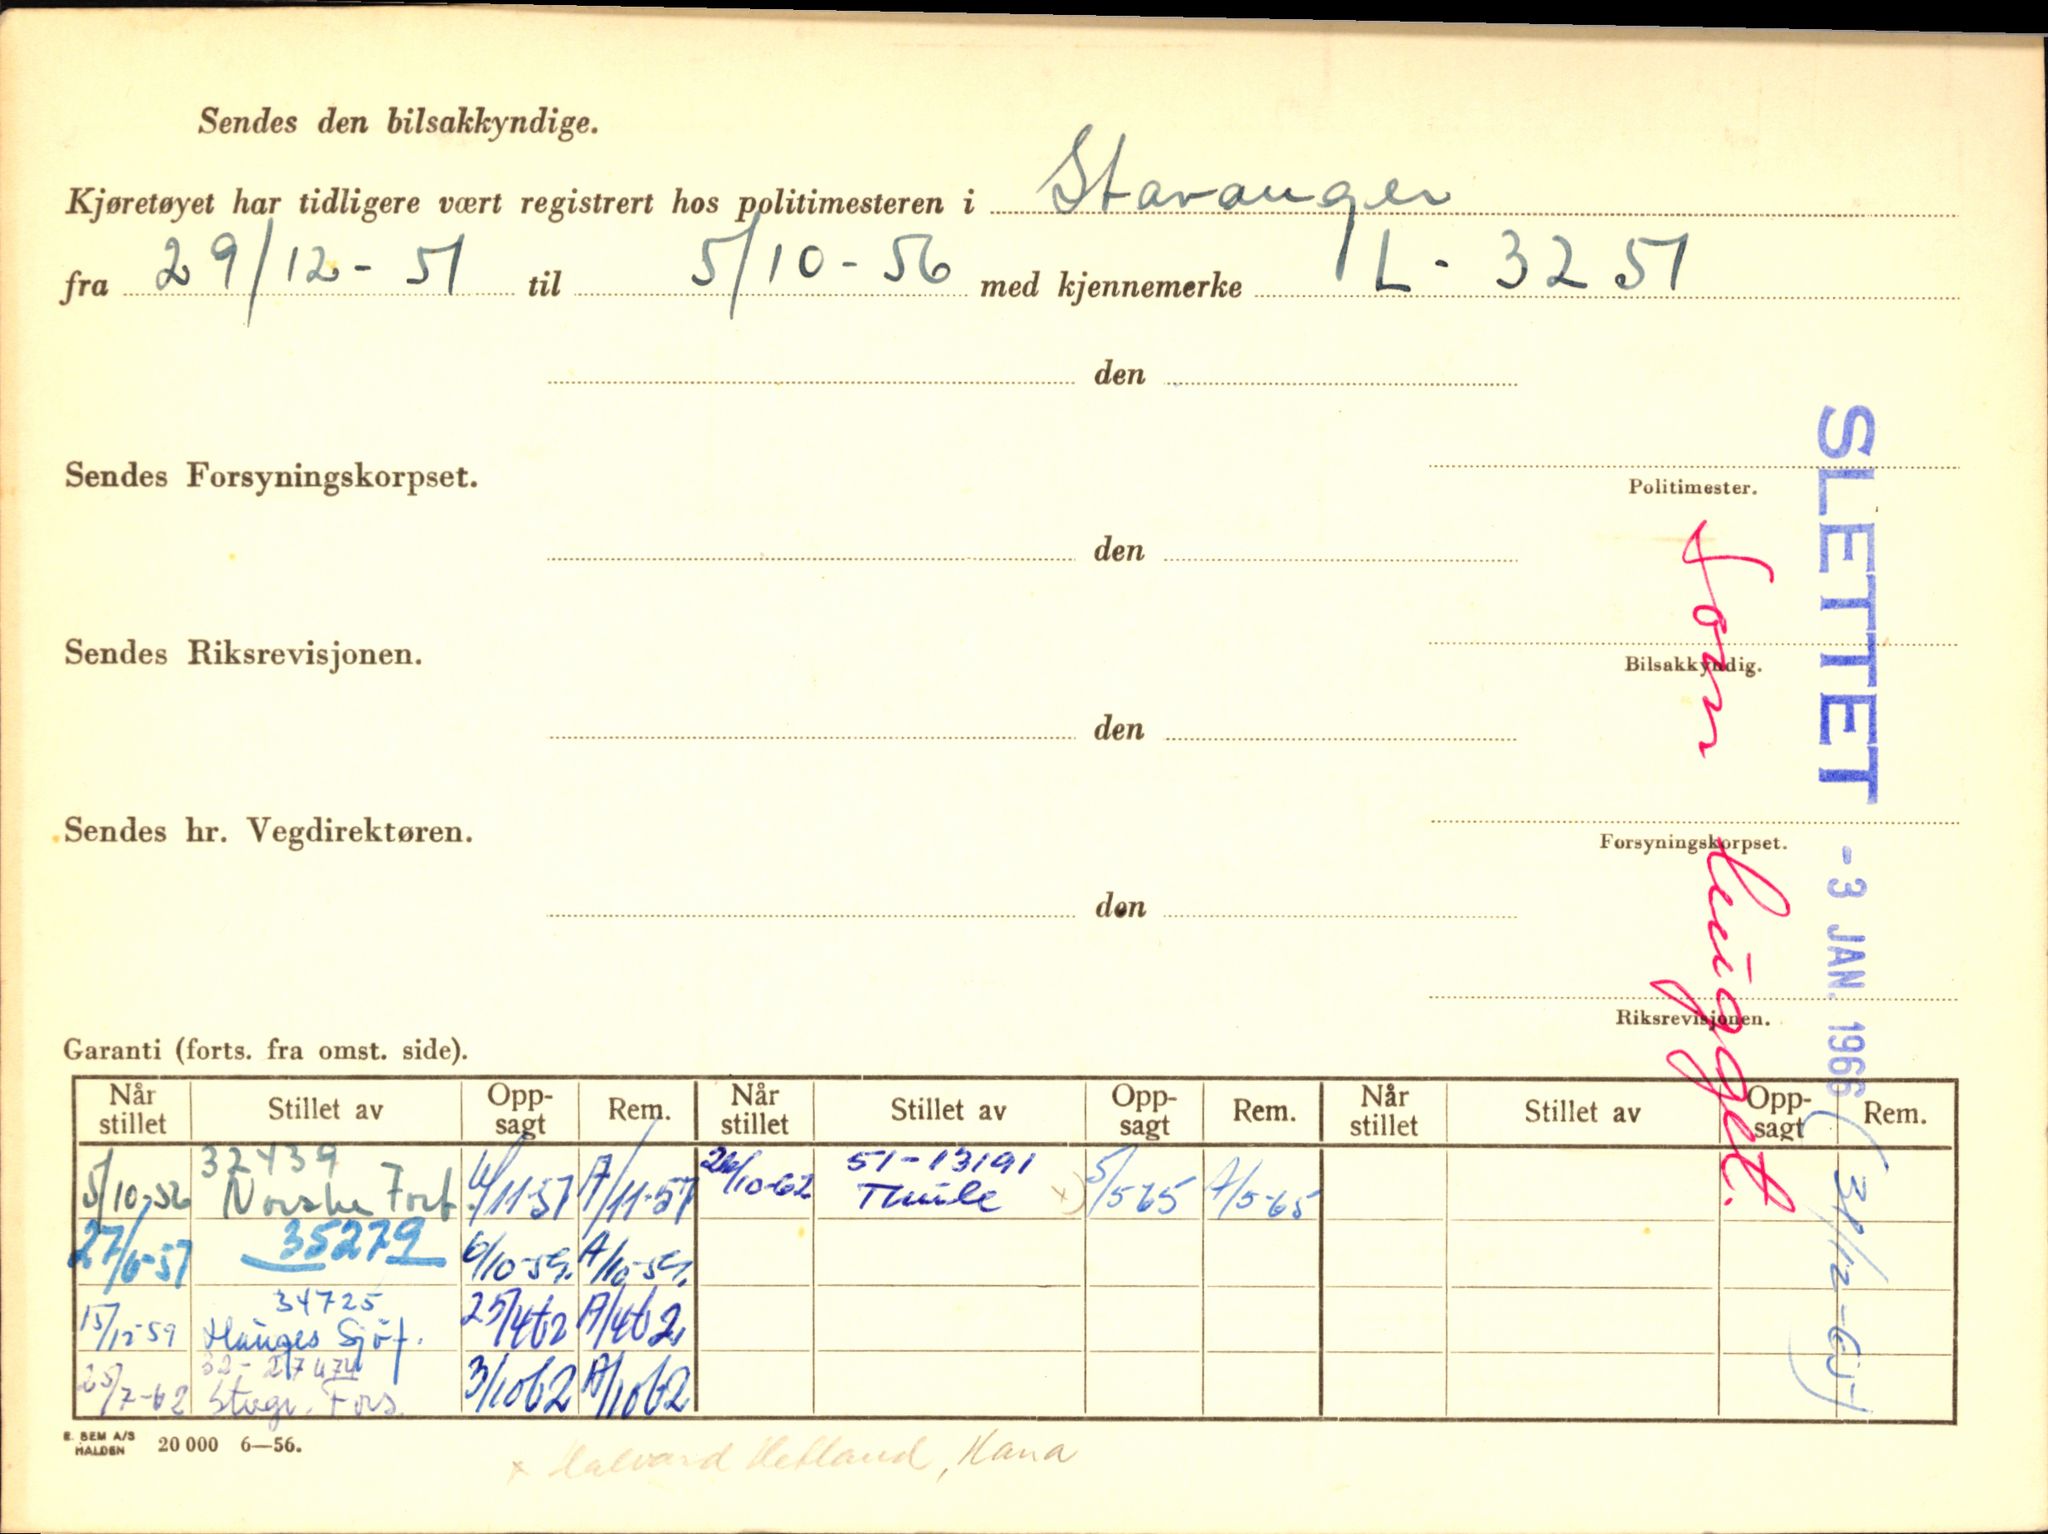 Sendes den bilsakkyndige.
Kjøretøyet har tidligere vært registrert hos politimesteren i Stavanger
fra 29/12-51 til 5/10-56 med kjennemerke L-3251
den
Politimester.
Sendes Forsyningskorpset.
den
Bilsakkyndig.
Sendes Riksrevisjonen.
den
Forsyningskorpset.
Sendes hr. Vegdirektøren.
den
Riksrevisjonen.
SLETTET - 3 JAN. 1966 (31/12-65)
Som hugget.
Garanti (forts. fra omst. side).
Når stillet Stillet av Opp-sagt Rem. Når stillet Stillet av Opp-sagt Rem. Når stillet Stillet av Opp-sagt Rem.
32439 51-13191
5/10-56 Norske Forf. /11-57 A/11-57 26/10-62 Thule x) 5/5-65 A/5-65
27/6-57 35279 6/10-59. A/10-59.
34725
15/12-59 Hauges Sjøf. 25/4 62 A/4 62
32-27474
25/7-62 Stvgr. Fors. 3/10 62 A/10 62
E. SEM A/S HALDEN 20 000 6—56.
x Halvard Hetland, Hana